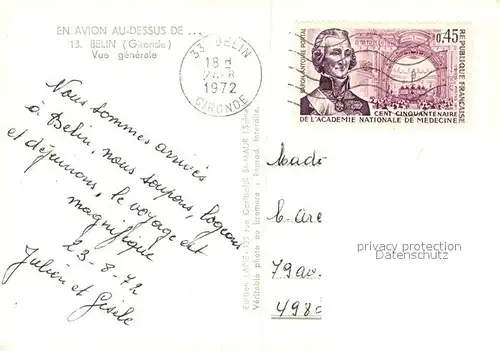 EN AVION AU-DESSUS DE ...
13. BELIN (Gironde)
Vue générale
33 BELIN
18 H
1972
GIRONDE
0,45
REPUBLIQUE FRANÇAISE
BARON ANTOINE PORTAL
CENT CINQUANTENAIRE
DE L'ACADEMIE NATIONALE DE MEDECINE
Nous sommes arrivés
à Belin, nous soupons, logeons
et déjeunons, le voyage est
magnifique
23-8-72
Julien et Gisèle
Edition LAPIE - 133 rue Garibaldi St-MAUR (Seine)
Véritable photo au bromure - Reprod. Interdite.
Mada
79 av.
498
privacy protection
Datenschutz